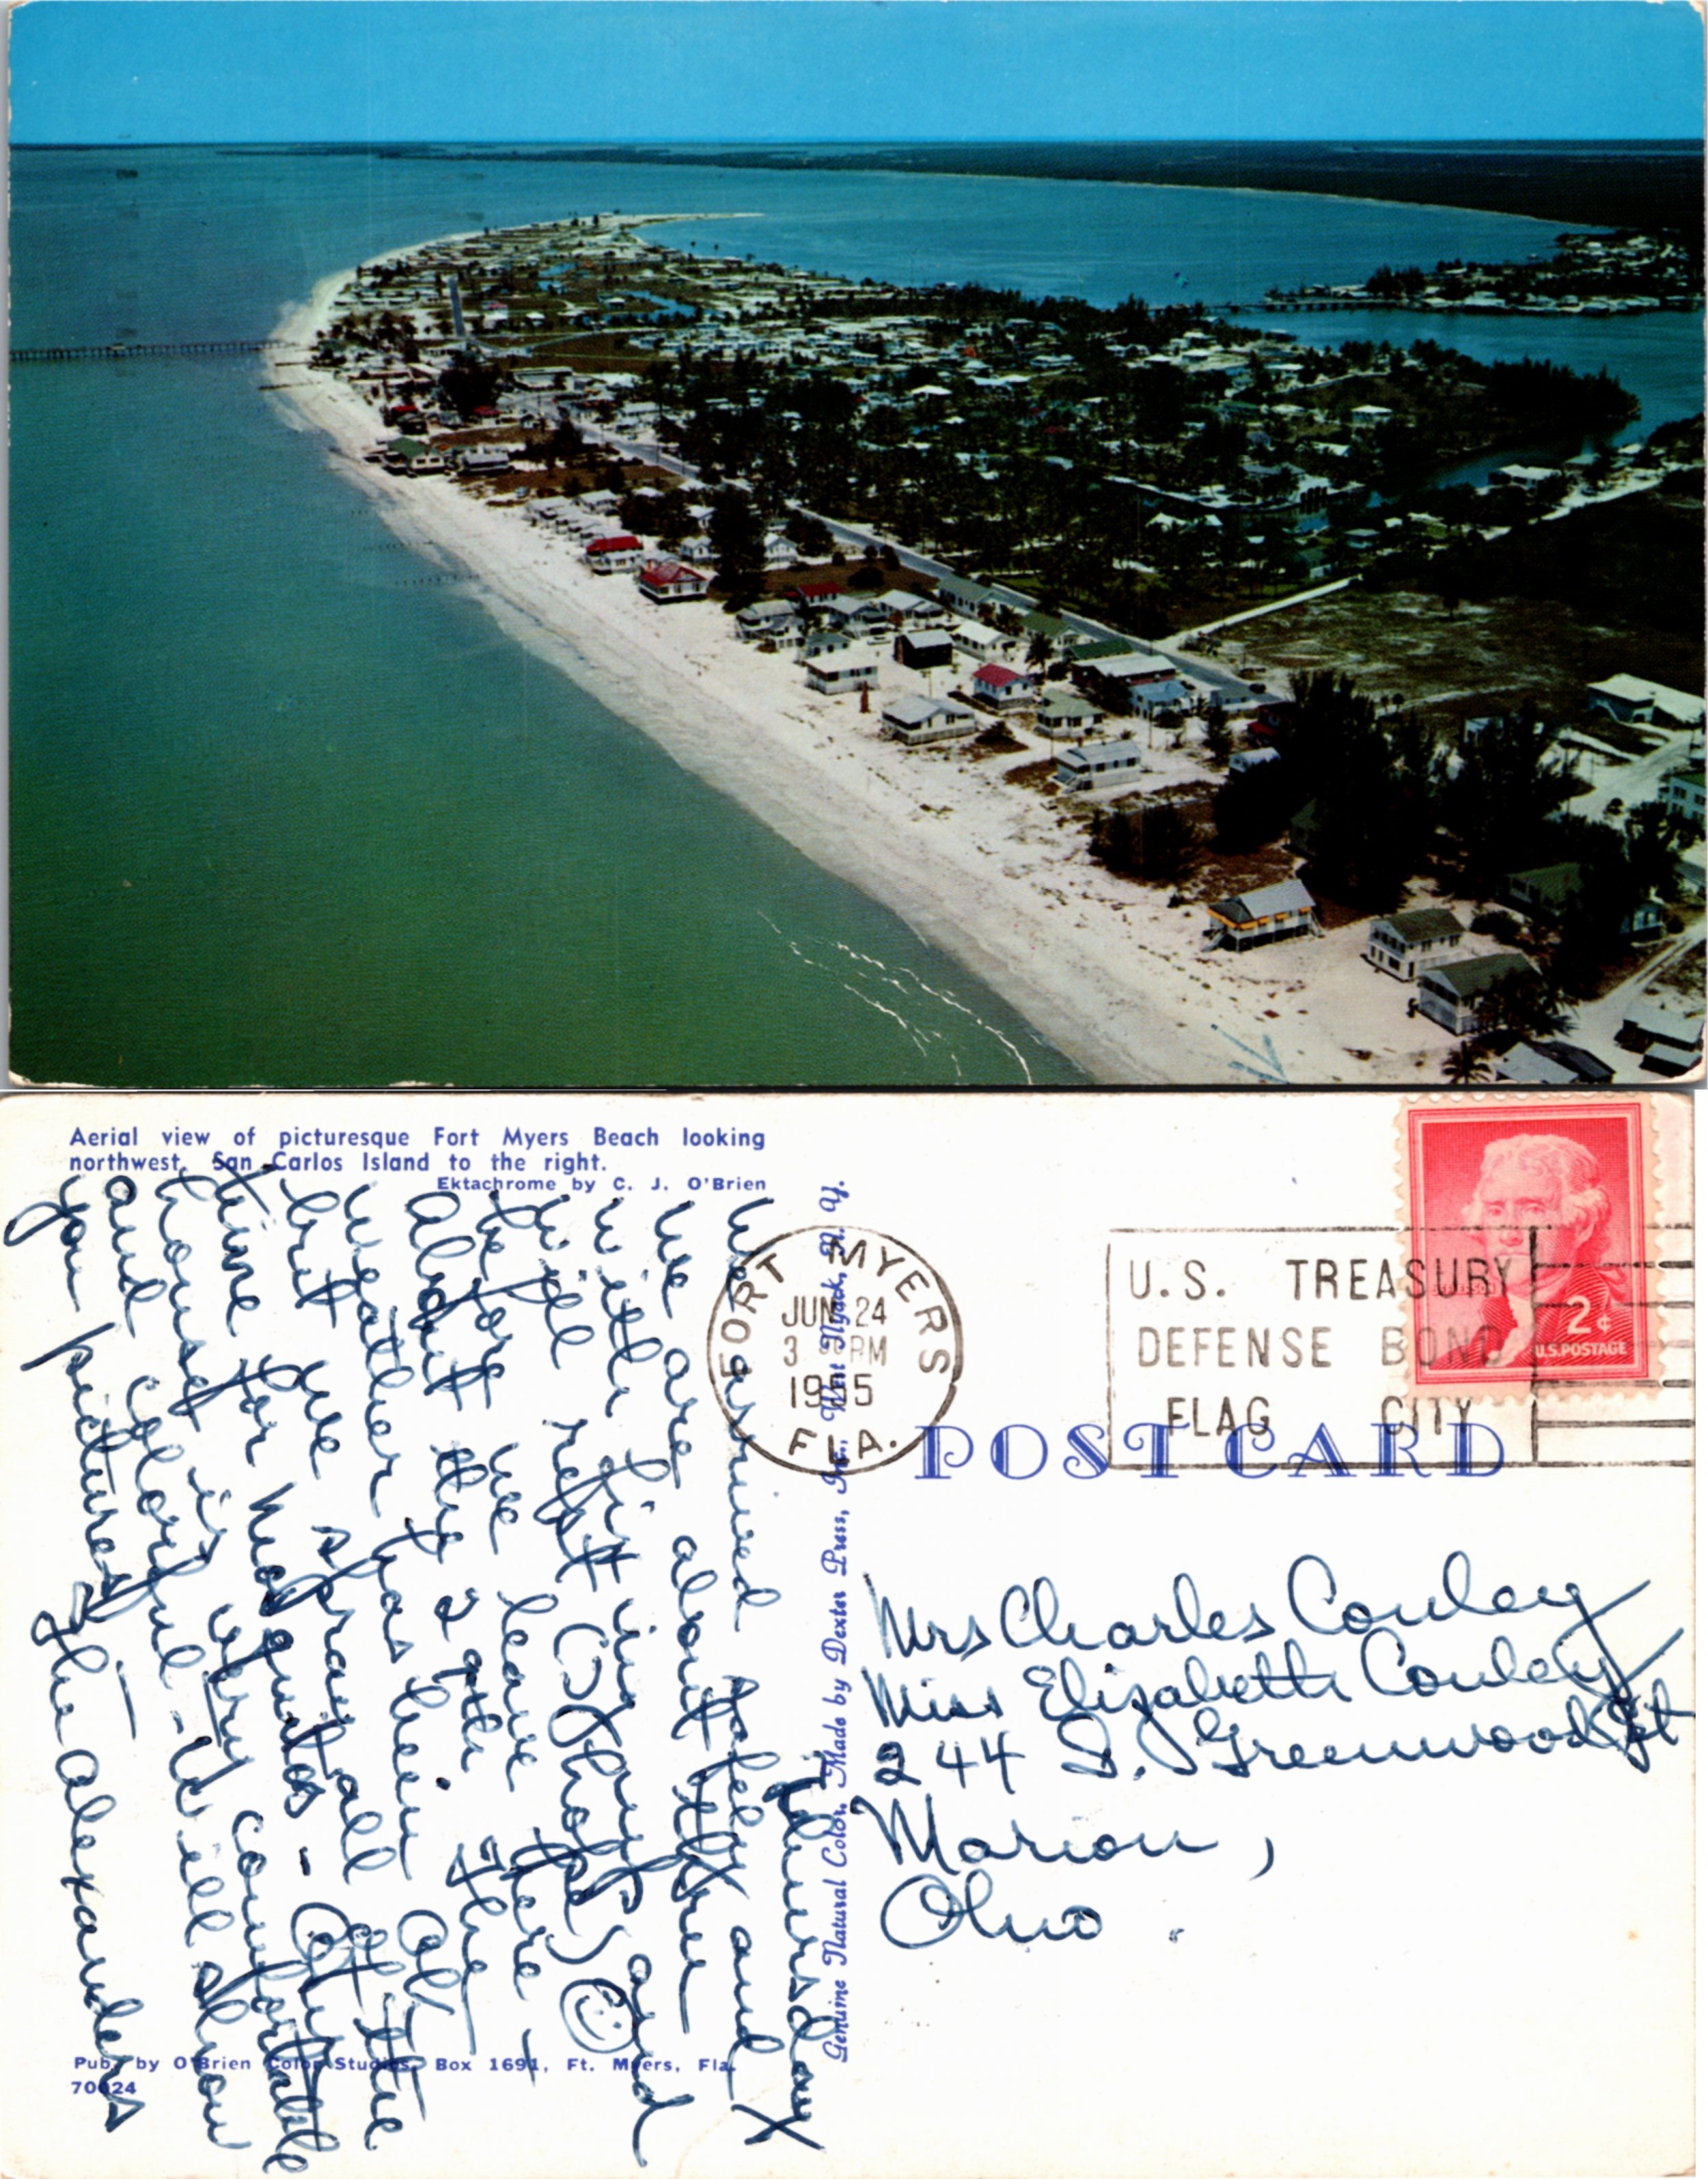 Aerial view of picturesque Fort Myers Beach looking
northwest. San Carlos Island to the right.
Ektachrome by C. J. O'Brien
Thursday
We arrived safely and X
we are about thru
with and
will rest (I hope)
we leave here
About the The
weather has been
but we spray all of the
time for Mosquitos -
house is very comfortable
and colorful - Will show
you pictures - The Alexanders
Pub. by O'Brien Color Studios, Box 1691, Ft. Myers, Fla.
70024
Genuine Natural Color, Made by Dexter Press, Inc., West Nyack, N. Y.
FORT MYERS
JUN 24
3 PM
1955
FLA.
U.S. TREASURY
DEFENSE BOND
FLAG CITY
2¢
U.S. POSTAGE
POST CARD
Mrs Charles Conley
Miss Elizabeth Conley
244 S. Greenwood St
Marion,
Ohio.